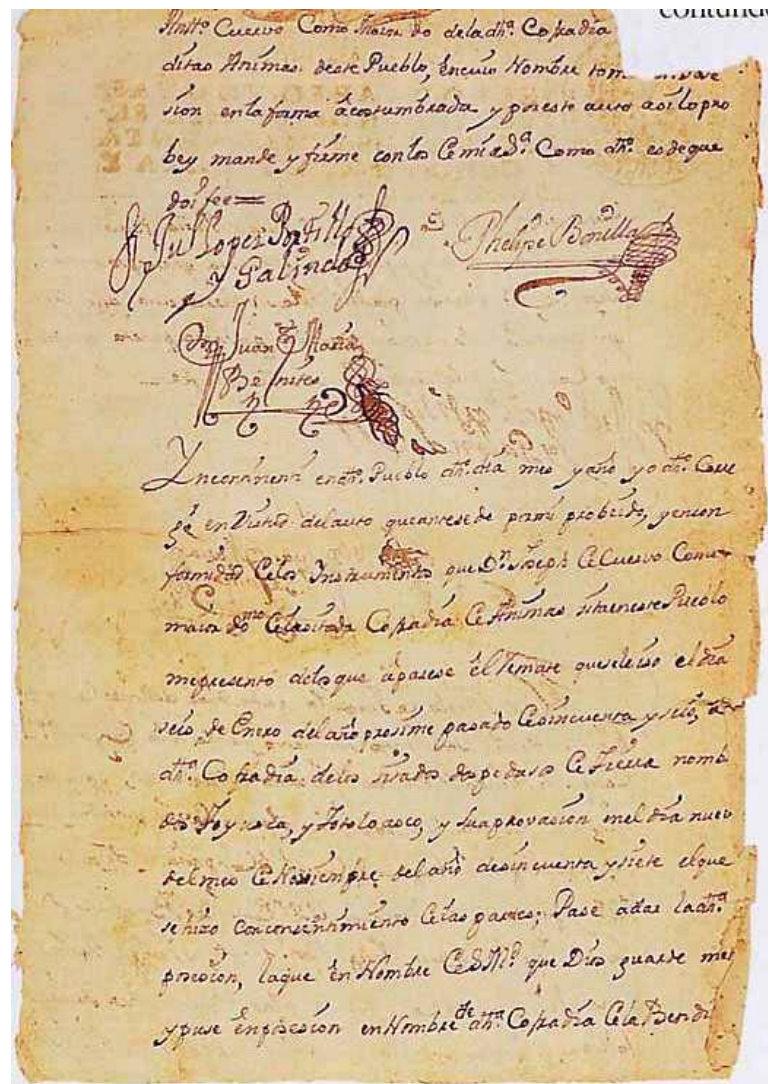 contund
Antt.º Cuervo Como Maior do dela dh.ª Cofradia
ditas Animas deste Pueblo, en cuio Nombre tom
sion en la forma acostumbrada y por este auto asi lo pro
bey mande y firme con los de mi as.ª Como dh.º es de que
doi fee =
Lopez Portillo
y Galindo
Phelipe Bonilla
Juan Maria
Benites
Yncontinenti en dh.º Pueblo dh.º dia mes y año yo dh.º Corre
en Virtud del auto que antesede por mi probeido, y en con
formidad de los Instrumentos que D.n Joseph de Cuervo Como
maior do.mo de la sitada Cofradia de Animas sita en este Pueblo
me presento de los que aparese el Remate que se le iso el dia
seis de Enero del año prosime pasado de sincuenta y siete, a
dh.ª Cofradia de los sitados dos pedasos de Tierra nomb
dos y su aprovasion en el dia nuev
del mes de Noviembre del año de sincuenta y siete el que
se hizo con consentimiento de las partes; Pase a dar la dh.ª
posesion, la que en Nombre de S.M.d que Dios guarde
y puse en posesion en Nombre de dh.ª Cofradia de la Bendi